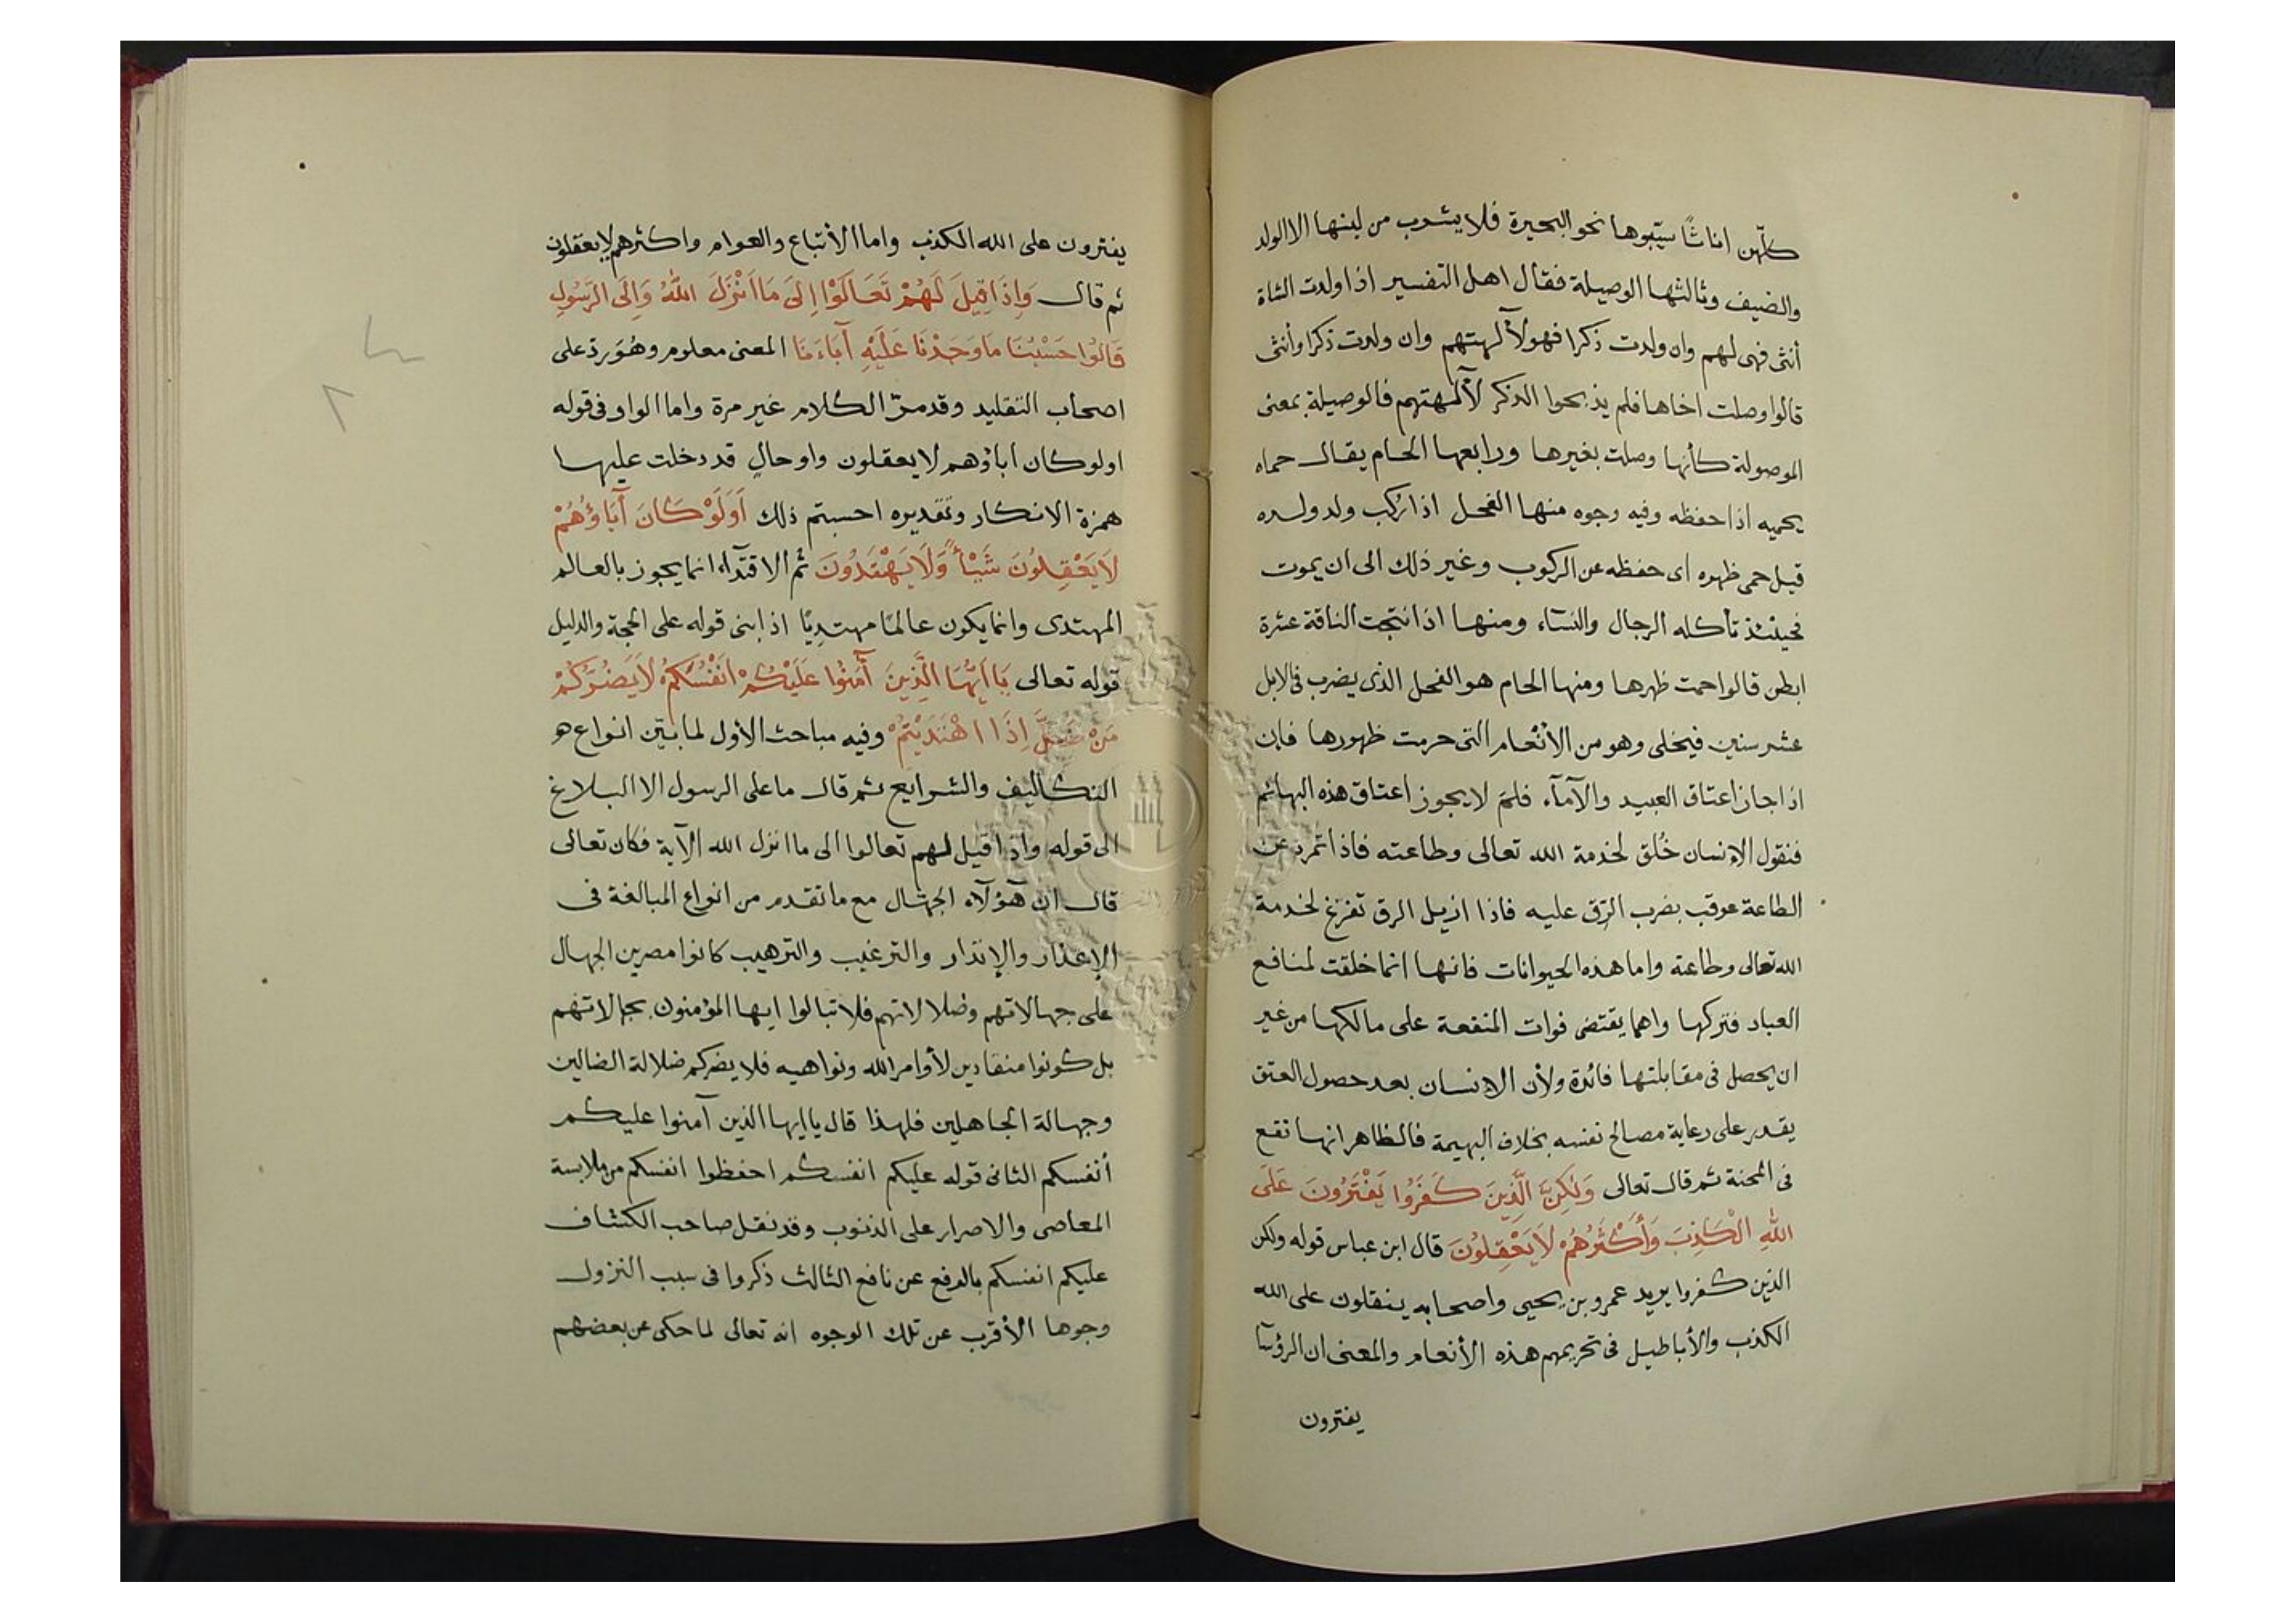 كلّهن اناثًا سيّبوها نحو البحيرة فلا يشرب من لبنها الا الولد
والضيف وثالثها الوصيلة فقال اهل التفسير اذا ولدت الشاة
أنثى فهى لهم وان ولدت ذكرا فهو لآلهتهم وان ولدت ذكرا وأنثى
قالوا وصلت اخاها فلم يذبحوا الذكر لآلهتهم فالوصيلة بمعنى
الموصولة كأنها وصلت بغيرها ورابعها الحام يقال حماه
يحميه اذا حفظه وفيه وجوه منها الفحل اذا رُكب ولد ولده
قيل حمى ظهره اى حفظه عن الركوب وغير ذلك الى ان يموت
فحينئذ تأكله الرجال والنسآء ومنها اذا نتجت الناقة عشرة
ابطن قالوا حمت ظهرها ومنها الحام هو الفحل الذى يضرب فى الابل
عشر سنين فيخلى وهو من الأنعام التى حرمت ظهورها فإن
اذا جاز اعتاق العبيد والآمآء فلم لا يجوز اعتاق هذه البهائم
فنقول الإنسان خُلق لخدمة الله تعالى وطاعته فاذا تمرد عن
الطاعة عوقب بضرب الرّق عليه فاذا ازيل الرق تفرغ لخدمة
الله تعالى وطاعة واما هذه الحيوانات فانها انما خلقت لمنافع
العباد فتركها واهما يقتضى فوات المنفعة على مالكها من غير
ان يحصل فى مقابلتها فائدة ولأن الانسان بعد حصول العتق
يقدر على رعاية مصالح نفسه بخلاف البهيمة فالظاهر انها تقع
فى المحنة ثم قال تعالى وَلٰكِنَّ الَّذِينَ كَفَرُوا يَفْتَرُونَ عَلَى
اللهِ الْكَذِبَ وَأَكْثَرُهُمْ لَا يَعْقِلُونَ قال ابن عباس قوله ولكن
الذين كفروا يريد عمرو بن يحيى واصحابه ينقلون على الله
الكذب والأباطيل فى تحريمهم هذه الأنعام والمعنى ان الرؤسآ
يفترون
يفترون على الله الكذب واما الأتباع والعوام واكثرهم لا يعقلون
ثم قال وَإِذَا قِيلَ لَهُمْ تَعَالَوْا إِلَىٰ مَا أَنْزَلَ اللهُ وَإِلَى الرَّسُولِ
قَالُوا حَسْبُنَا مَا وَجَدْنَا عَلَيْهِ آبَاءَنَا المعنى معلوم وهُوَ ردّ على
اصحاب التقليد وقد مرّ الكلام غير مرة واما الواو فى قوله
اولو كان اباؤهم لا يعقلون واو حال قد دخلت عليها
همزة الانكار وتقديره احسبتم ذلك اَوَلَوْ كَانَ آبَاؤُهُمْ
لَا يَعْقِلُونَ شَيْئًا وَلَا يَهْتَدُونَ ثم الاقتدآء انما يجوز بالعالم
المهتدى وانما يكون عالمًا مهتديًا اذا بنى قوله على الحجة والدليل
قوله تعالى يَا اَيُّهَا الَّذِينَ آمَنُوا عَلَيْكُمْ اَنْفُسَكُمْ لَا يَضُرُّكُمْ
مَنْ ضَلَّ اِذَا اهْتَدَيْتُمْ وفيه مباحث الأول لما بيّن انواع هو
التكاليف والشرايع ثم قال ما على الرسول الا البلاغ
الى قوله واذا قيل لهم تعالوا الى ما انزل الله الآية فكان تعالى
قال ان هؤلآء الجهّال مع ما تقدم من انواع المبالغة فى
الإعذار والإنذار والترغيب والترهيب كانوا مصرين الجهال
على جهالاتهم وضلالاتهم فلا تبالوا ايها المؤمنون بجهالاتهم
بل كونوا منقادين لأوامر الله ونواهيه فلا يضركم ضلالة الضالين
وجهالة الجاهلين فلهذا قال يا ايها الذين آمنوا عليكم
أنفسكم الثانى قوله عليكم انفسكم احفظوا انفسكم من ملابسة
المعاصى والاصرار على الذنوب وقد نقل صاحب الكشاف
عليكم انفسكم بالرفع عن نافع الثالث ذكروا فى سبب النزول
وجوها الأقرب عن تلك الوجوه انه تعالى لما حكى عن بعضهم